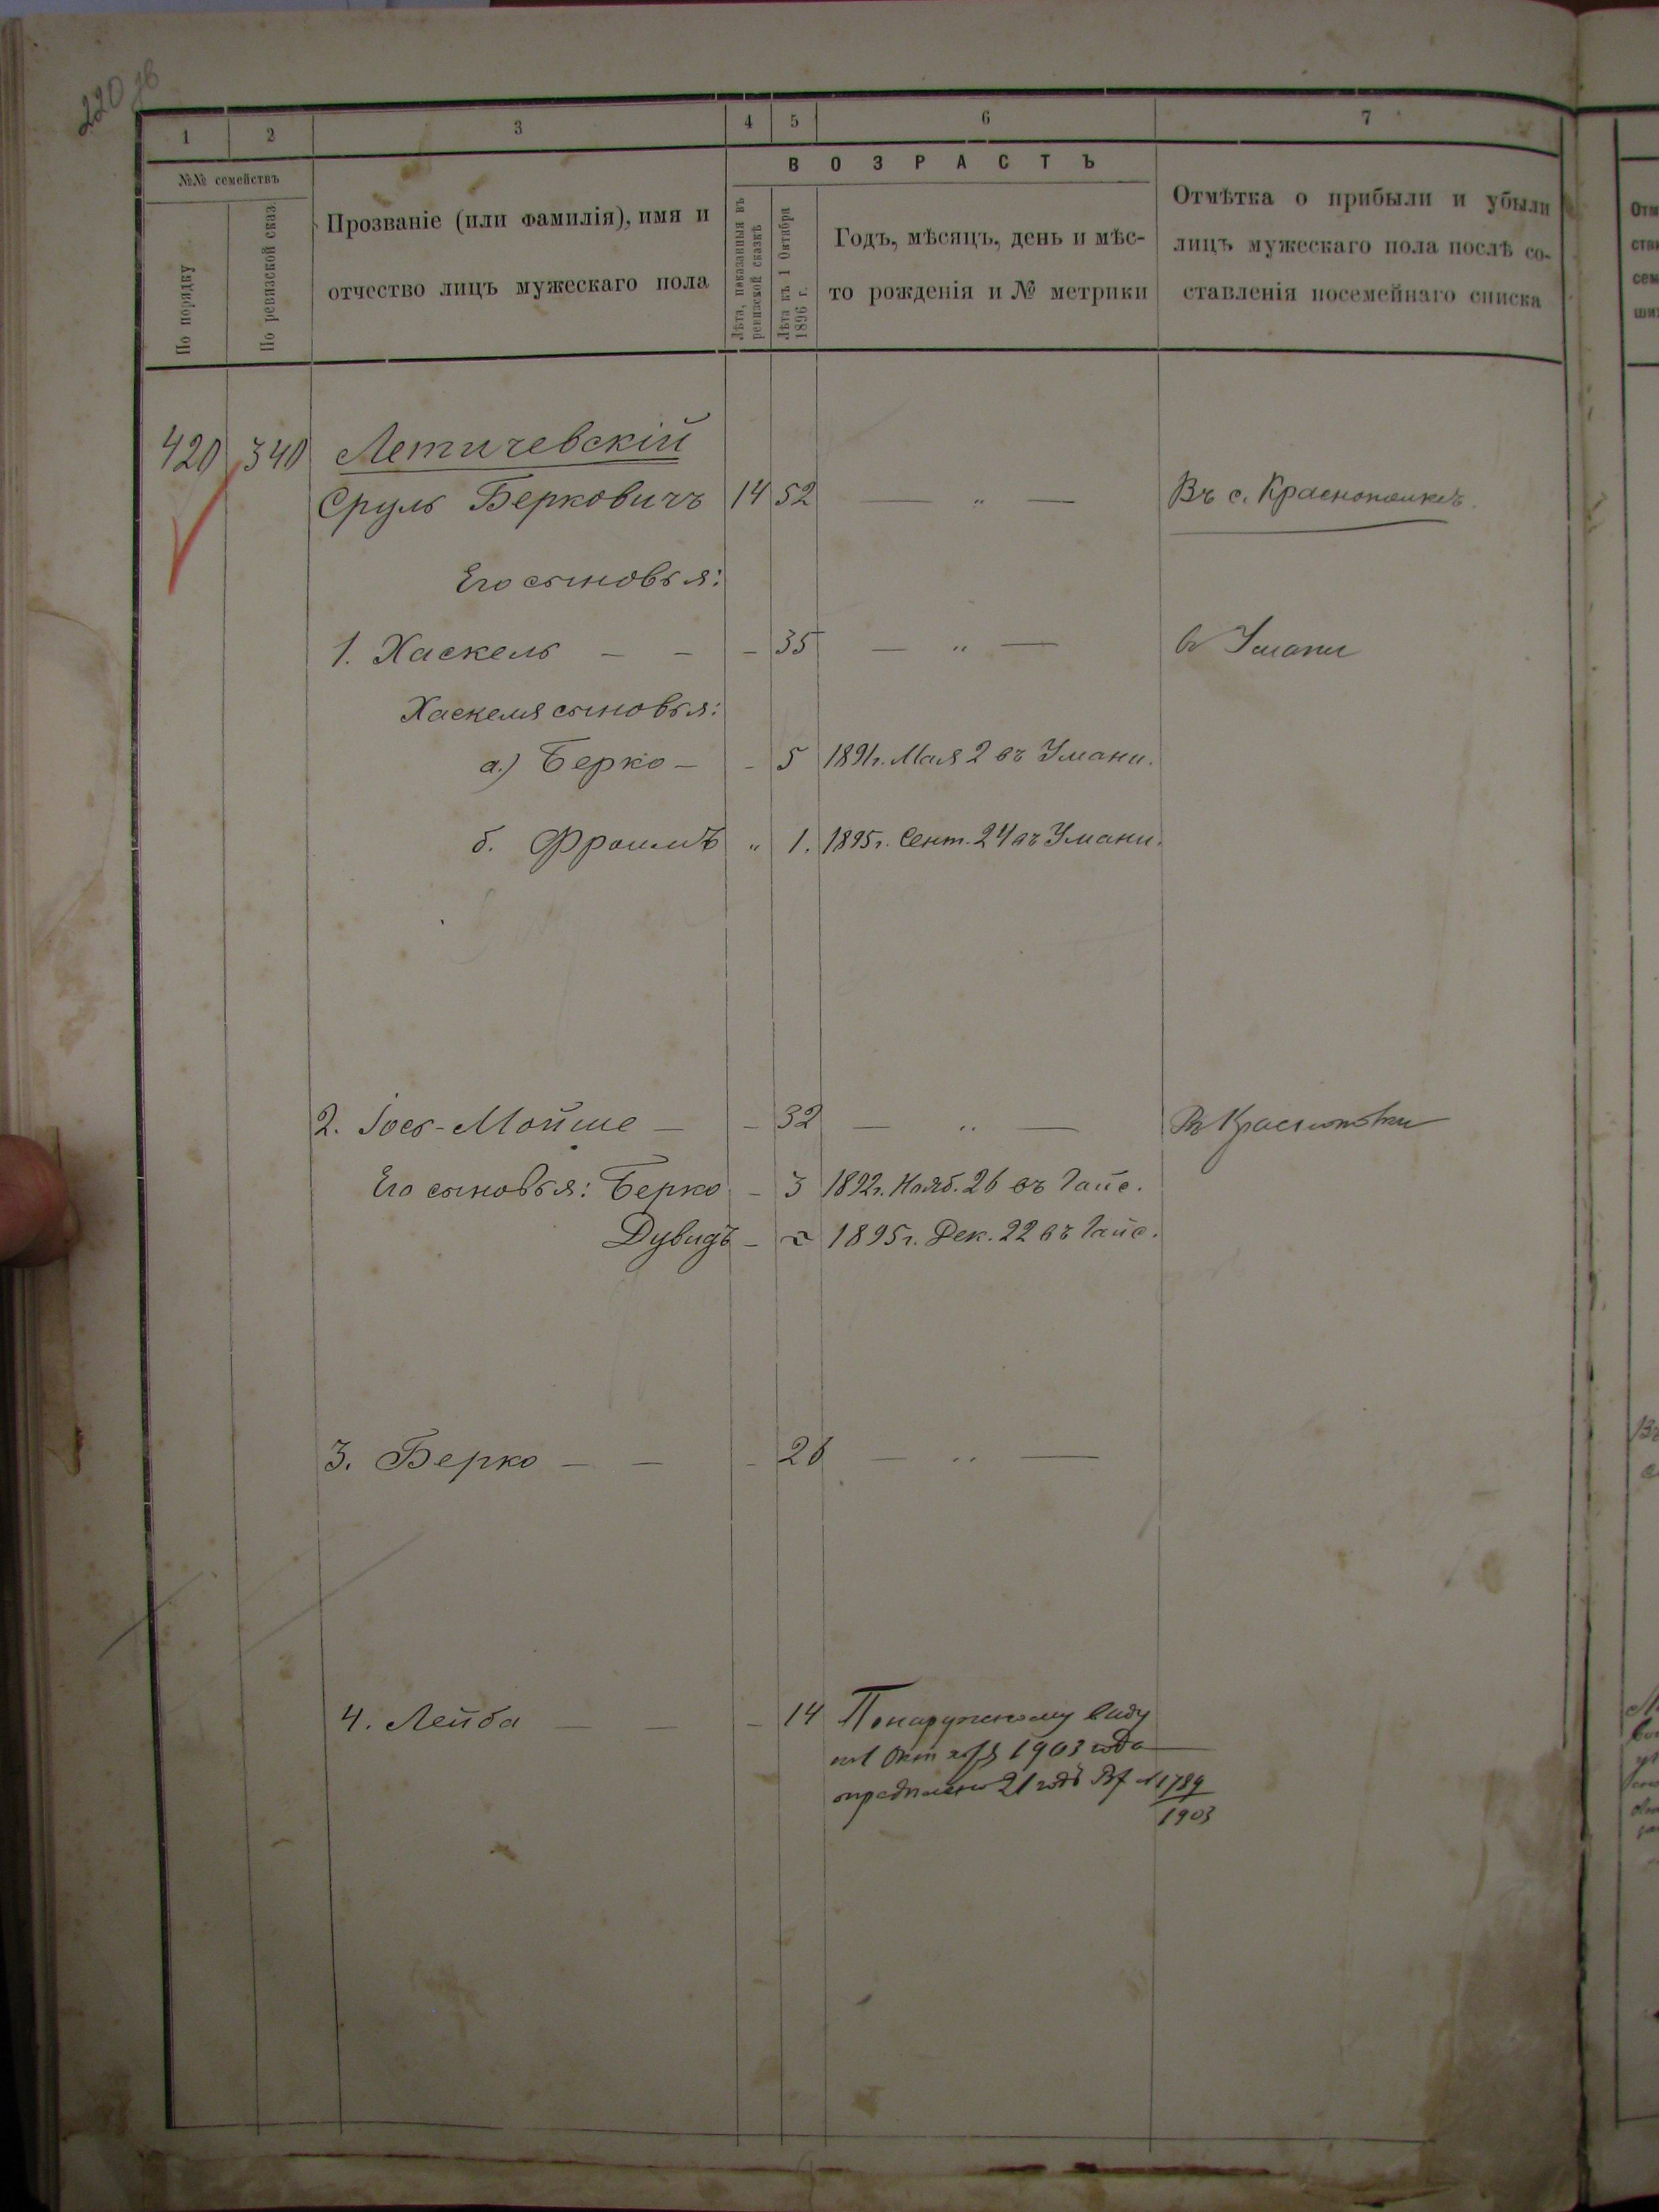 220 зв
1 2 3 4 5 6 7
№№ семействъ
По порядку
По ревизской сказ.
Прозваніе (или фамилія), имя и
отчество лицъ мужескаго пола
ВОЗРАСТЪ
Лѣта, показанныя въ
ревизской сказкѣ
Лѣта къ 1 Октября
1896 г.
Годъ, мѣсяцъ, день и мѣс-
то рожденія и № метрики
Отмѣтка о прибыли и убыли
лицъ мужескаго пола послѣ со-
ставленія посемейнаго списка
420 340 Летичевскій
Сруль Берковичъ 14 52 — „ — Въ с.
Его сыновья:
1. Хаскель — — - 35 — „ — в Умани
Хаскеля сыновья:
а.) Берко — - 5 1891г. Мая 2 въ Умани.
б. Фроимъ „ 1. 1895г. Сент. 24 въ Умани.
2. Іось-Мойше — - 32 — „ —
Его сыновья: Берко - 3 1892г. Нояб. 26 въ Гайс.
Дувидъ - 1895г. Дек. 22 въ Гайс.
3. Берко — — - 26 — „ —
4. Лейба — — - 14 По наружному виду
на 1 Октября 1903 года
опредѣлено 21 годъ № 1789
1903